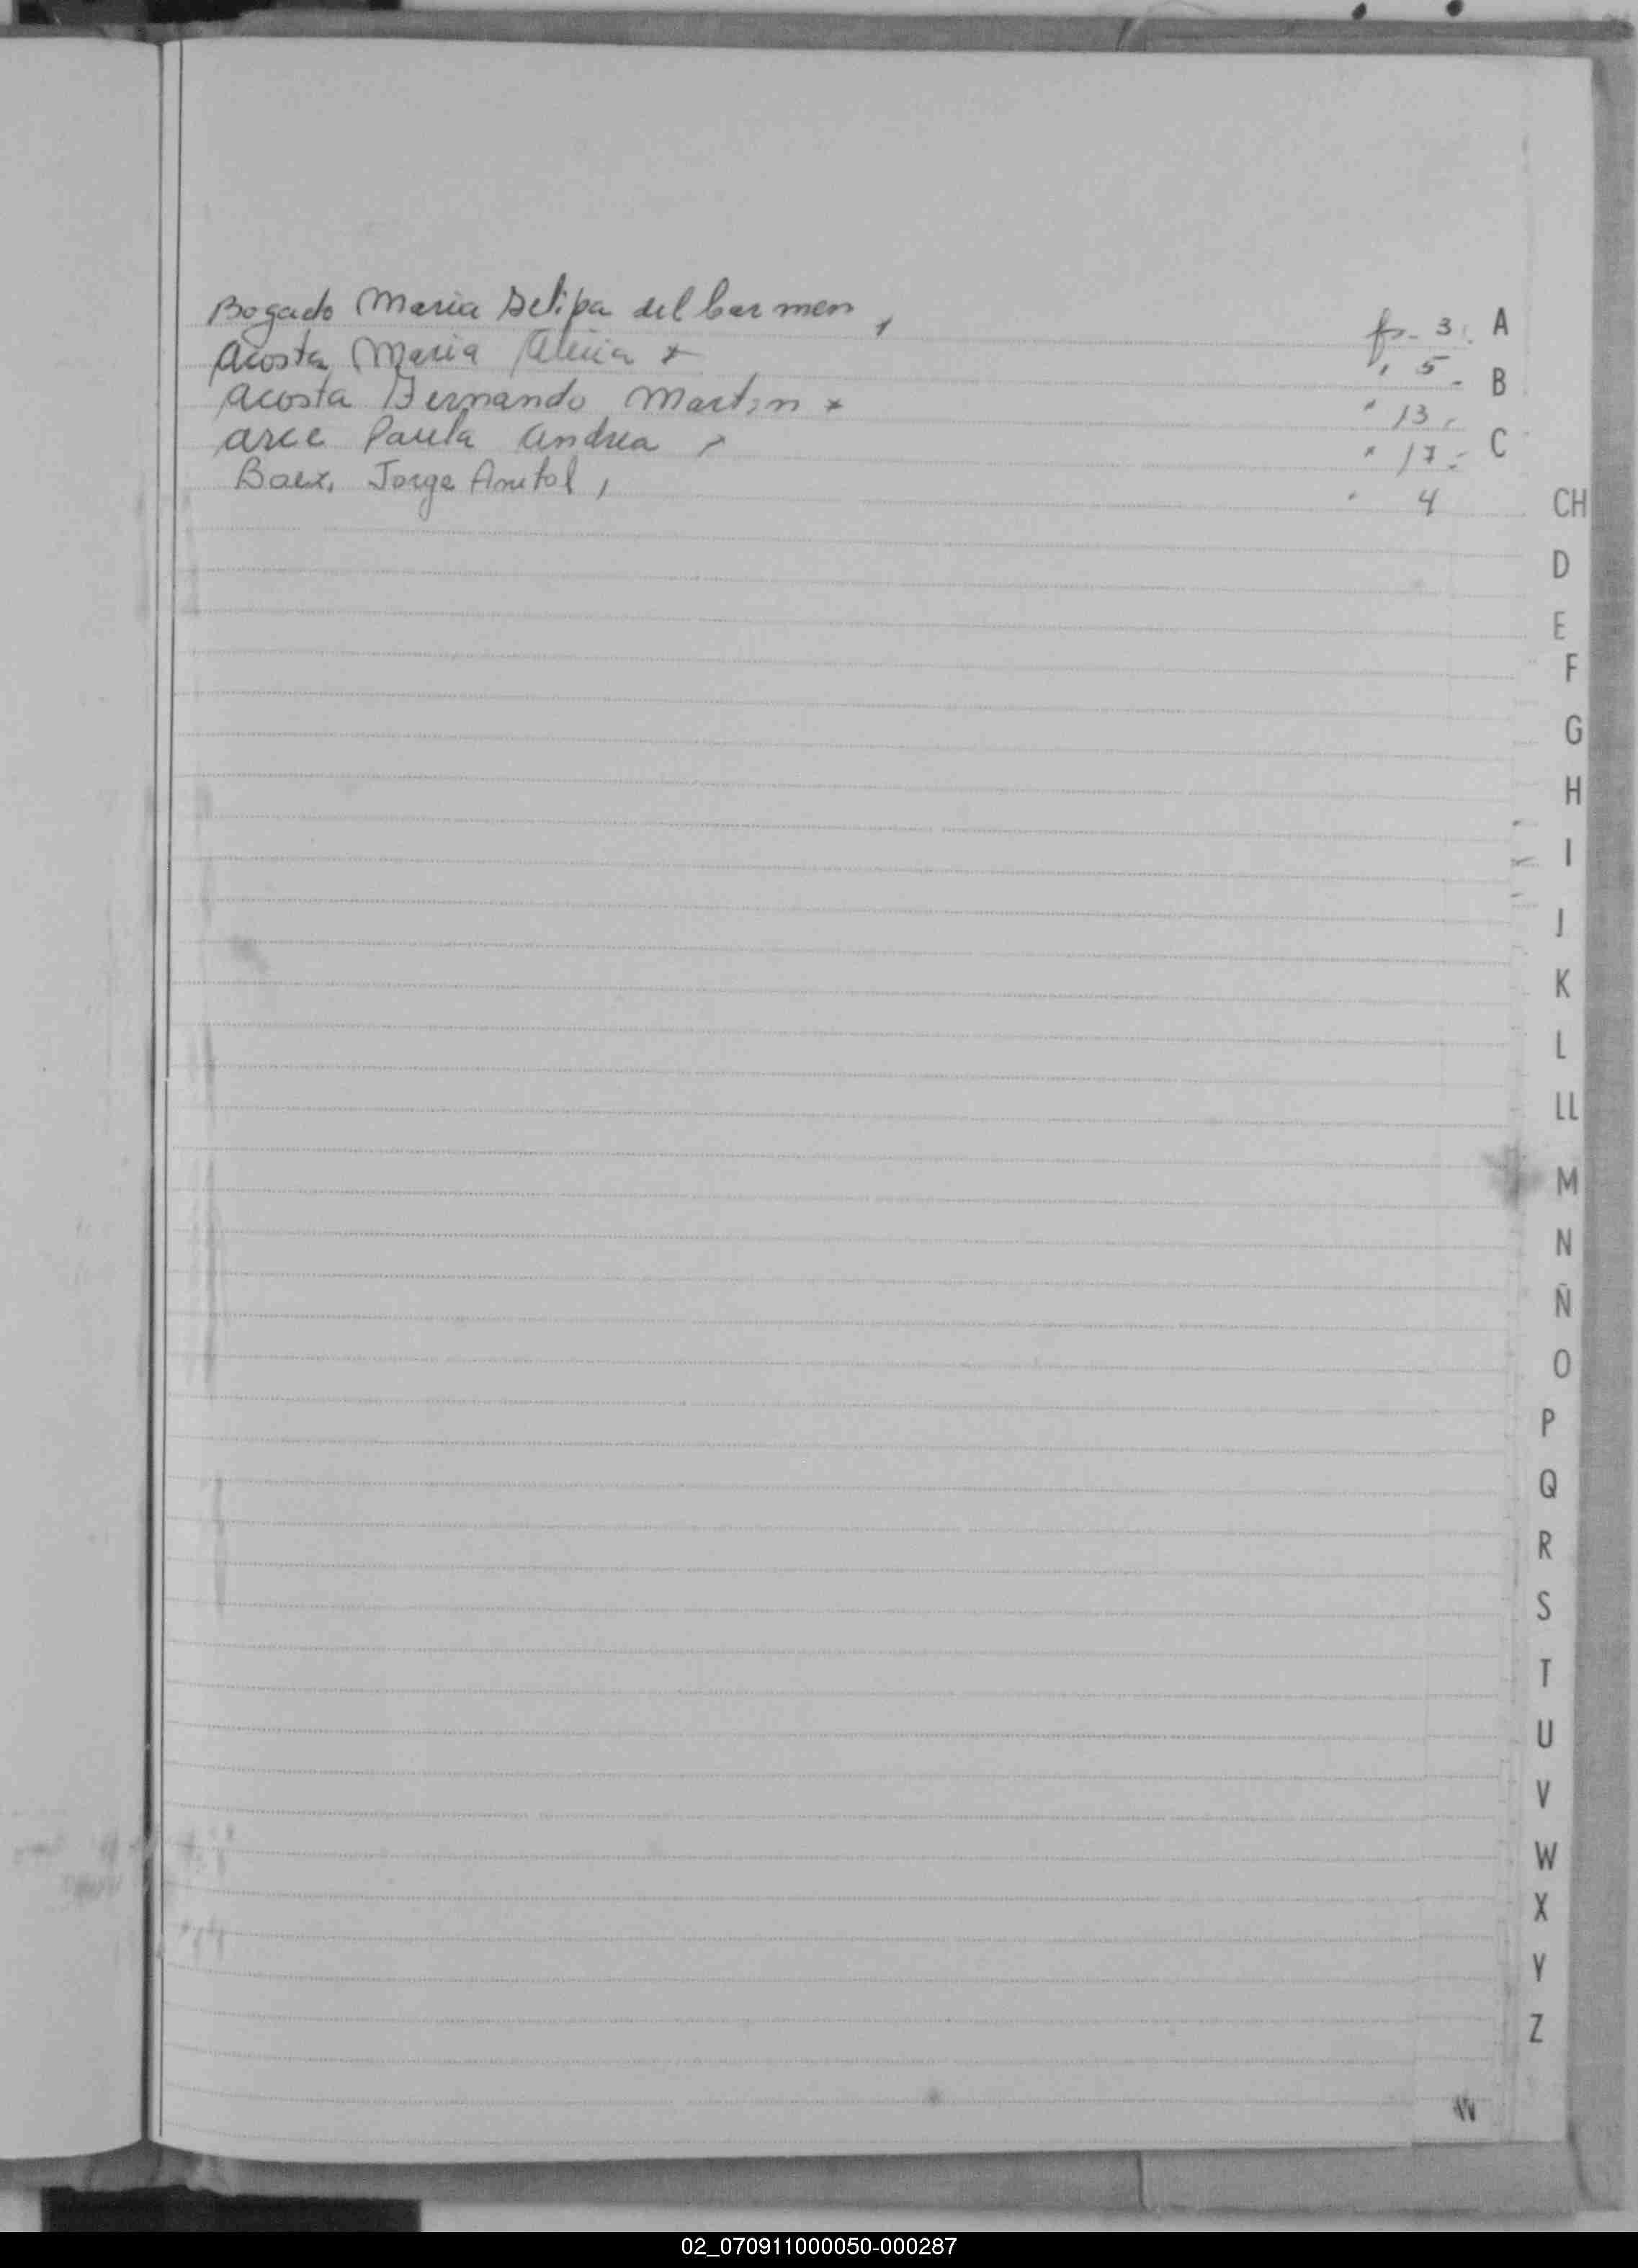 Bogado Maria Felipa del Carmen, fs. 3. A
Acosta Maria Alicia " 5. B
Acosta Fernando Martin " 13, C
Arce Paula Andrea " 17.
Baez, Jorge 4
CH
D
E
F
G
H
I
J
K
L
LL
M
N
Ñ
O
P
Q
R
S
T
U
V
W
X
Y
Z
02_070911000050-000287